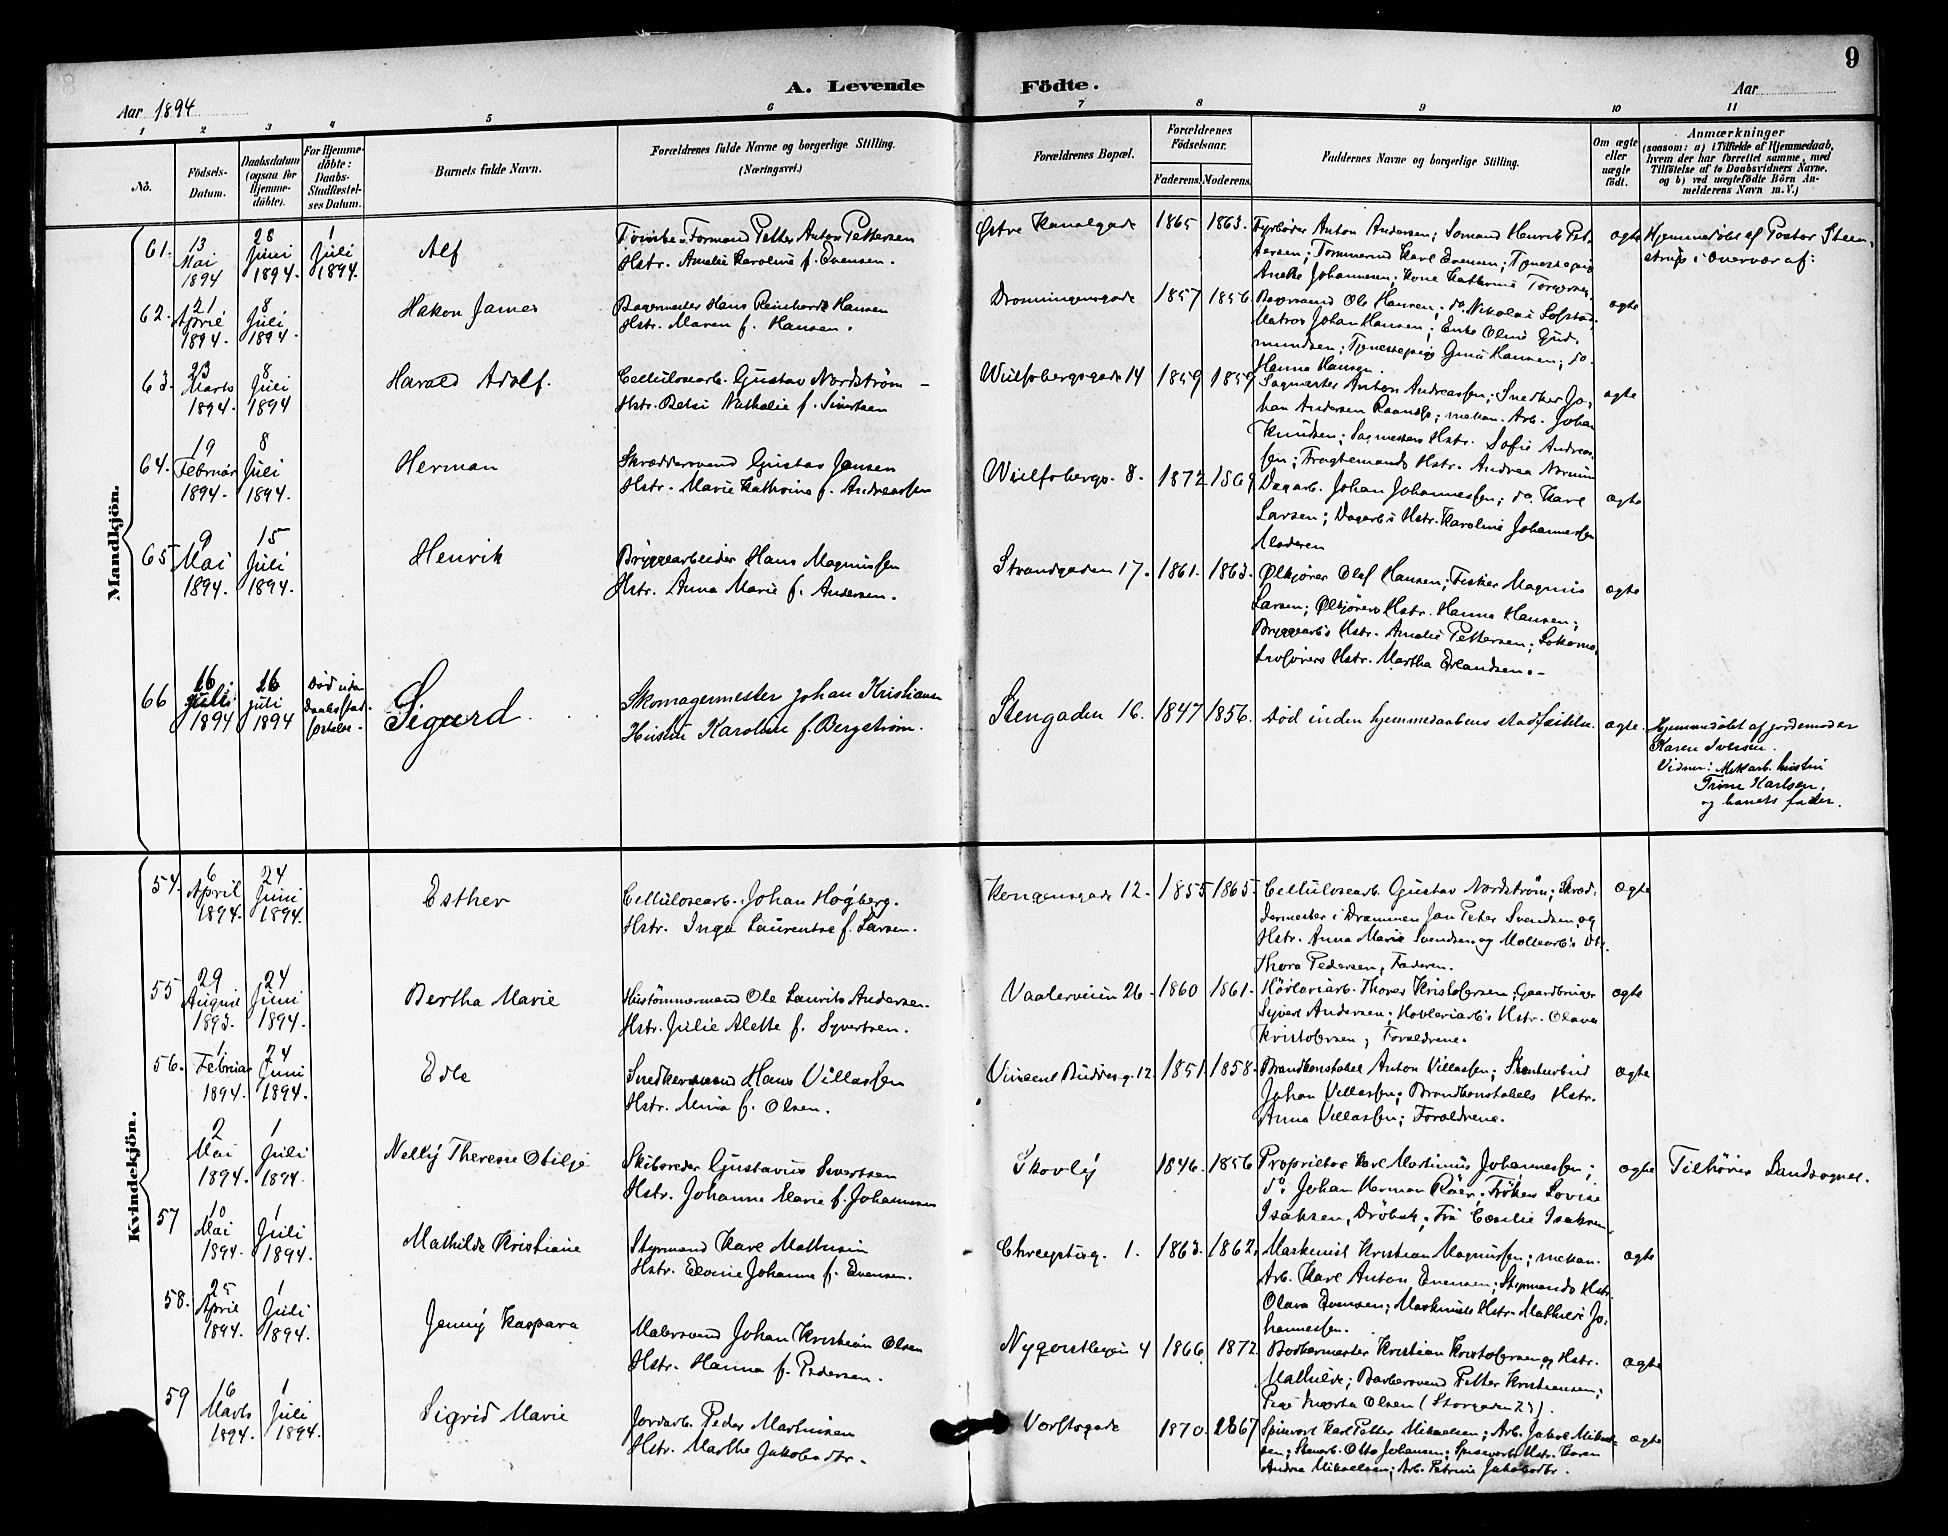 9
A. Levende Födte.
Aar 1894
Aar
1 2 3 4 5 6 7 8 9 10 11
No.
Födsels-
Datum.
Daabsdatum
(ogsaa for
Hjemme-
döbte).
For Hjemme-
döbte:
Daabs-
Stadfæstel-
ses Datum.
Barnets fulde Navn.
Forældrenes fulde Navne og borgerlige Stilling.
(Næringsvei.)
Forældrenes Bopæl.
Forældrenes
Födselsaar.
Faderens. Moderens.
Faddernes Navne og borgerlige Stilling.
Om ægte
eller
uægte
födt.
Anmærkninger
(saasom: a) i Tilfælde af Hjemmedaab,
hvem der har forrettet samme, med
Tilföielse af to Daabsvidners Navne.
og b) ved uægtefödte Börn An-
melderens Navn m. V.)
Mandkjön.
61. 13 Mai 1894
28 Juni 1894.
1 Juli 1894.
Alf
Formand Petter Anton Pettersen
Hstr. Amalie Karoline f. Evensen.
Østre Kanalgade
1865 1863.
Fyrbøder Anton Andersen; Sømand Henrik Pet-
tersen; Tømmermd Karl Evensen; Tjenestepig
Anette Johannesen; Kone Kathrine Torgersen.
ægte
Hjemmedøbt af Pastor Steen-
strup i Overvær af:
62. 21 April 1894.
8 Juli 1894.
Hakon James
Bagermester Hans Reinhardt Hansen
Hstr. Maren f. Hansen.
Dronningensgade
1857 1856.
Bagersvend Ole Hansen; do. Nikolai
Matros Johan Hansen; Enke Oline Gud-
mundsen; Tjenestepige Gina Hansen; do.
Hanna Hansen.
ægte
63. 23 Marts 1894.
8 Juli 1894
Harald Adolf.
Cellulosearb. Gustav Nordstrøm
Hstr. Betsi Nathalie f. Sivertsen
Wulfsbergsgade 14
1859 1859
Sagmester Anton Andreassen; Snedker Jo-
han Andersen; mekan. Arb. Johan
Knudsen; Sagmesters Hstr. Sofie Andreas-
sen; Fragtemands Hstr. Andrea
ægte
64. 19 Februar 1894.
8 Juli 1894.
Herman
Skræddersvend Gustav Jensen
Hstr. Marie Kathrine f. Andreassen
Wulfsbergs. 8.
1872 1869
Dagarb. Johan Johannessen; do. Karl
Larsen; Dagarb's Hstr. Karoline Johannessen
Moderen
ægte
65 9 Mai 1894.
15 Juli 1894.
Henrik
Bryggearbeider Hans Magnussen
Hstr. Anna Marie f. Andersen.
Strandgaden 17.
1861. 1863.
Ølkjører Olaf Hansen; Fisker Magnus
Larsen; Ølkjørers Hstr. Hanna Hansen;
Bryggearb's Hstr. Amalie Pettersen; Lokomo-
tivførers Hstr. Martha Erlandsen.
ægte
66 16 Juli 1894
16 juli 1894
Død uden
Daabsstad-
fæstelse.
Sigurd
Skomagermester Johan Kristiansen
Hustru Karoline f. Bergstrøm.
Stengaden 16.
1847 1856.
Død inden hjemmedaabens stadfæstelse.
ægte.
Hjemmedøbt af jordemoder
Karen Iversen.
Vidner: Mek arb. hustru
Trine Karlsen,
og barnets fader.
Kvindekjön.
54. 6 April 1894.
24 Juni 1894.
Esther
Cellulosearb. Johan Høgberg.
Hstr. Inga Laurentse f. Larsen.
Kongensgade 12.
1855 1865.
Cellulosearb. Gustav Nordstrøm; Skræd-
dermester i Drammen Jan Peter Svendsen og
Hstr. Anna Marie Svendsen og
Thora Pedersen, Faderen.
ægte
55 29 August 1893.
24 Juni 1894.
Bertha Marie
Hustømmermand Ole Laurits Andersen.
Hstr. Julie Alette f. Syvertsen.
Vaaleveien 26
1860 1861.
Høvleriarb. Thorvs Kristofersen; Gaardbruger
Syvert Andersen; Høvleriarb's Hstr. Olava
Kristofersen; Forældrene.
ægte
56. 1 Februar 1894.
24 Juni 1894.
Edle
Snedkersvend Hans Villassen
Hstr. Mina f. Olsen.
Vincent Buddes g. 12
1851 1858.
Brandkonstabel Anton Villassen;
Johan Villassen; Brandkonstabels Hstr.
Anna Villassen; Forældrene.
ægte
2 Mai 1894.
1 Juli 1894.
Nelly Therese Otilje
Skibsreder Gustavus Sivertsen
Hstr. Johanne Marie f. Johannesen
Skovly
1846. 1856
Proprietær Karl Martinius Johannessen;
do. Johan Herman Röer; Frøken Lovise
Isaksen, Drøbak; Fru Cæcilie Isaksen
ægte
Tilhører Landsognet.
57 10 Mai 1894.
1 Juli 1894.
Mathilde Kristiane
Styrmand Karl Mathisen
Hstr. Elvine Johanne f. Evensen.
1.
1863. 1862,
Maskinist Kristian Magnussen; mekan.
Arb. Karl Anton Evensen; Styrmands Hstr.
Olava Evensen; Maskinists Hstr. Mathilde Jo-
hannessen.
ægte
58. 25 April 1894.
1 Juli 1894.
Jenny Kaspara
Malersvend Johan Kristian Olsen
Hstr. Hanna f. Pedersen.
4
1866 1872
Bødkermester Kristian Kristofersen og Hstr.
Mathilde; Barbersvend Petter Kristiansen;
Pige Marta Olsen (Storgaden 29).
ægte
59 16 Marts 1894.
1 Juli 1894.
Sigrid Marie
Jordarb. Peder Martinsen
Hstr. Marthe Jakobsdtr.
Værftsgade
1870. 1867
Karl Petter Mikaelsen; Arb. Jakob Mikael-
sen; Otto Johansen; Hstr. Karen
Andrea Mikaelsen; Arb. Petrine Jakobsdtr.
ægte